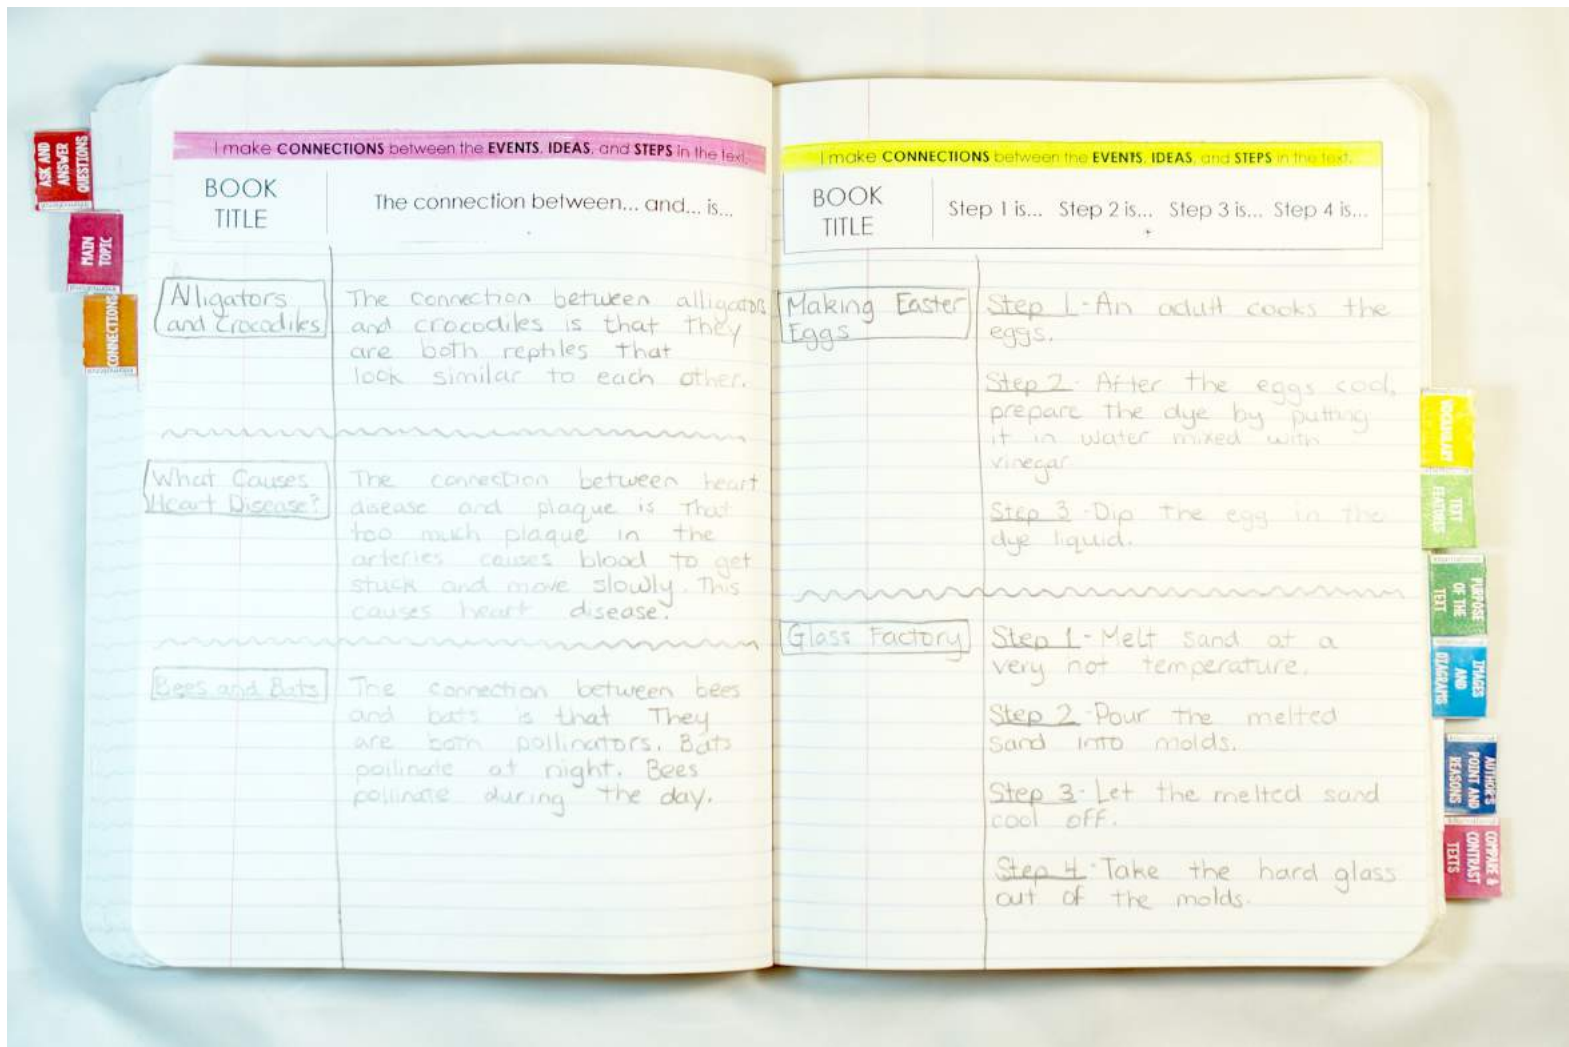 ASK AND
ANSWER
QUESTIONS
MAIN
TOPIC
CONNECTIONS
I make CONNECTIONS between the EVENTS, IDEAS, and STEPS in the text.
BOOK
TITLE
The connection between... and... is...
Alligators
and Crocodiles
The connection between alligators
and crocodiles is that they
are both reptiles that
look similar to each other.
What Causes
Heart Disease?
The connection between heart
disease and plaque is that
too much plaque in the
arteries causes blood to get
stuck and move slowly. This
causes heart disease.
Bees and Bats
The connection between bees
and bats is that They
are both pollinators. Bats
pollinate at night. Bees
pollinate during the day.
I make CONNECTIONS between the EVENTS, IDEAS, and STEPS in the text.
BOOK
TITLE
Step 1 is... Step 2 is... Step 3 is... Step 4 is...
Making Easter
Eggs
Step 1-An adult cooks the
eggs.
Step 2- After the eggs cool,
prepare the dye by putting
it in water mixed with
vinegar.
Step 3-Dip the egg in the
dye liquid.
Glass Factory
Step 1-Melt sand at a
very hot temperature.
Step 2-Pour the melted
sand into molds.
Step 3-Let the melted sand
cool off.
Step 4-Take the hard glass
out of the molds.
VOCABULARY
TEXT
FEATURES
PURPOSE
OF THE
TEXT
IMAGES
AND
DIAGRAMS
AUTHOR'S
POINT AND
REASONS
COMPARE &
CONTRAST
TEXTS